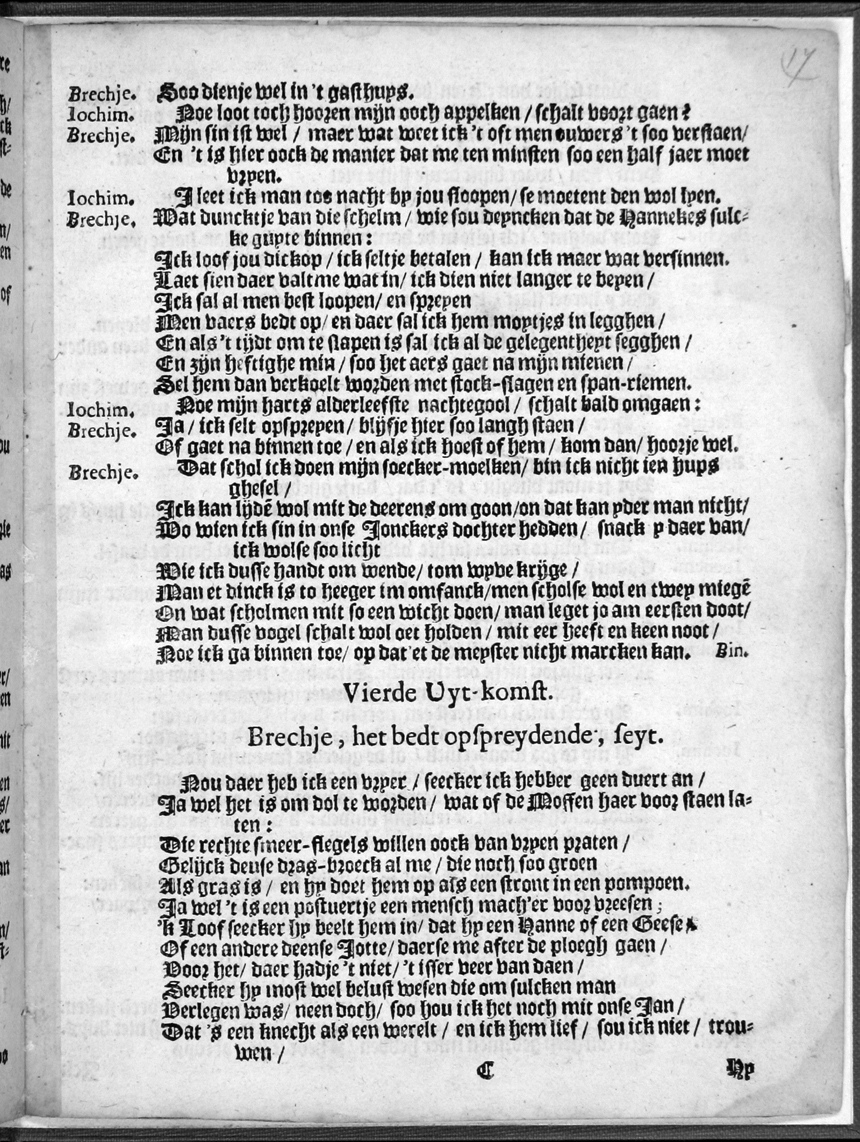 17
Brechje. Soo dienje wel in 't gasthuys.
Iochim. Noe loot toch hooren mijn ooch appelken / schalt voort gaen?
Brechje. Mijn sin ist wel / maer wat weet ick 't oft men ouwers 't soo verstaen/
En 't is hier oock de manier dat me ten minsten soo een half jaer moet
vryen.
Iochim. I leet ick man toe nacht by jou sloopen/ se moetent den wol lyen.
Brechje. Wat duncktje van die schelm / wie sou deyncken dat de Hannekes sulc-
ke guyte binnen:
Ick loof jou dickop / ick seltje betalen / kan ick maer wat versinnen.
Laet sien daer valt me wat in/ ick dien niet langer te beyen /
Ick sal al men best loopen/ en spreyen
Men vaers bedt op/ en daer sal ick hem moytjes in legghen /
En als 't tijdt om te slapen is sal ick al de gelegentheyt segghen /
En zijn heftighe min / soo het aers gaet na mijn mienen /
Sel hem dan verkoelt worden met stock-slagen en span-riemen.
Iochim. Noe mijn harts alderleefste nachtegool / schalt bald omgaen:
Brechje. Ja/ ick selt opspreyen/ blijfje hier soo langh staen /
Of gaet na binnen toe/ en als ick hoest of hem/ kom dan/ hoorje wel.
Brechje. Dat schol ick doen mijn soecker-moelken/ bin ick nicht ien huys
ghesel /
Ick kan lydē wol mit de deerens om goon/on dat kan yder man nicht/
Wo wien ick sin in onse Jonckers dochter hedden / snack y daer van/
ick wolse soo licht
Wie ick dusse handt om wende/ tom wyve krijge /
Man et dinck is to heeger im omfanck/men scholse wol en twey miegē
On wat scholmen mit so een wicht doen/ man leget jo am eersten doot/
Man dusse vogel schalt wol oet holden / mit eer heeft en keen noot /
Noe ick ga binnen toe/ op dat et de meyster nicht marcken kan. Bin.
Vierde Uyt-komst.
Brechje, het bedt opspreydende, seyt.
Nou daer heb ick een vryer / seecker ick hebber geen duert an /
Ja wel het is om dol te worden / wat of de Moffen haer voor staen la-
ten:
Die rechte smeer-flegels willen oock van vryen praten /
Gelijck deuse dras-broeck al me / die noch soo groen
Als gras is / en hy doet hem op als een stront in een pompoen.
Ja wel 't is een postuertje een mensch mach'er voor vreesen;
'k Loof seecker hy beelt hem in/ dat hy een Hanne of een Geese
Of een andere deense Jotte/ daerse me after de ploegh gaen /
Voor het/ daer hadje 't niet/ 't isser veer van daen /
Seecker hy most wel belust wesen die om sulcken man
Verlegen was/ neen doch/ soo hou ick het noch mit onse Jan /
Dat 's een knecht als een werelt / en ick hem lief / sou ick niet / trou-
wen /
C Hy